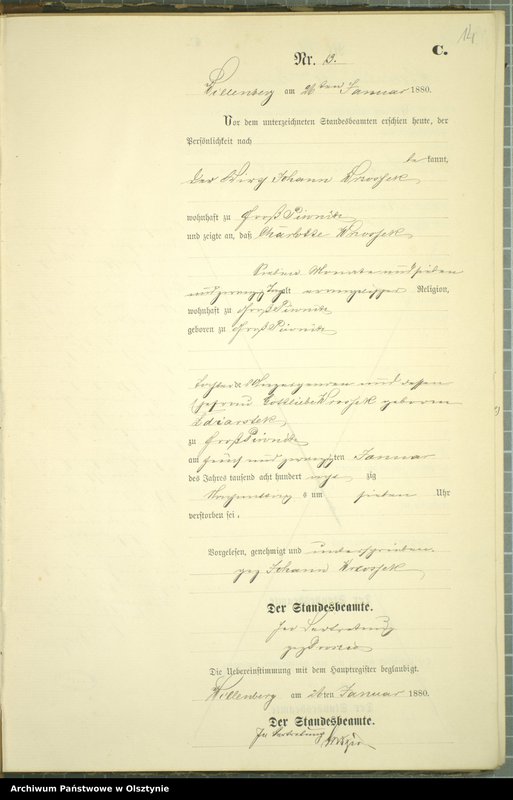 14
C.
Nr. 13.
Willenberg am 26ten Januar 1880.
Vor dem unterzeichneten Standesbeamten erschien heute, der
Persönlichkeit nach
be kannt,
der Wirth Johann Wrossek
wohnhaft zu Groß Piwnitz
und zeigte an, daß Charlotte Wrossek
sieben Monate und sieben
und zwanzig Tage alt evangelischer Religion,
wohnhaft zu Groß Piwnitz
geboren zu Groß Piwnitz
Tochter des Anzeigenden und dessen
Ehefrau Gottliebe Wrossek geborene
zu Groß Piwnitz
am fünf und zwanzigten Januar
des Jahres tausend acht hundert acht zig
Nachmittags um sieben Uhr
verstorben sei.
Vorgelesen, genehmigt und unterschrieben.
gez Johann Wrossek
Der Standesbeamte.
In Vertretung
gez
Die Uebereinstimmung mit dem Hauptregister beglaubigt.
Willenberg am 26ten Januar 1880.
Der Standesbeamte.
In Vertretung
Archiwum Państwowe w Olsztynie